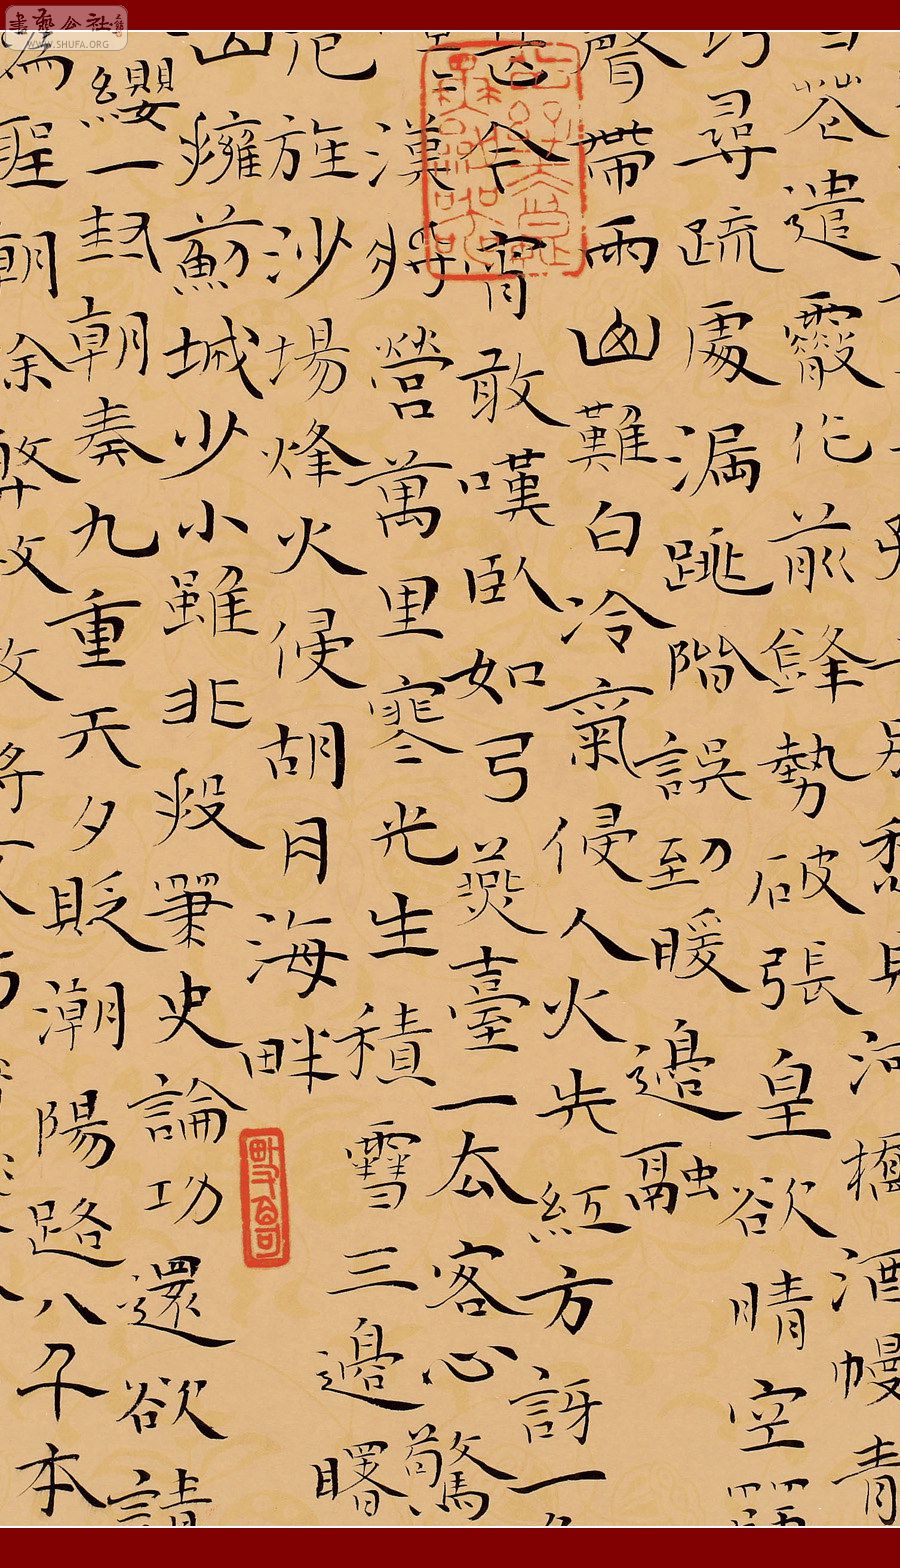 書藝公社
WWW.SHUFA.ORG
河橋酒幔青
花遣霰作前鋒勢破張皇欲晴空
巧尋疏處漏跳階誤到暖邊融
聲帶雨山難白冷氣侵人火失紅方訝一
甚今宵敢嘆臥如弓燕臺一去客心驚
漢將營萬里寒光生積雪三邊曙
危旌沙場烽火侵胡月海畔
山擁薊城少小雖非投筆史論功還欲請
纓一封朝奏九重天夕貶潮陽路八千本
為聖朝除弊政